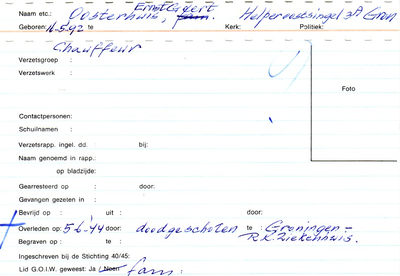 Naam etc.: Oosterhuis, Ernst Geert Helpervestsingel 3A Gron
Geboren: 11-5-92 te Kerk: Politiek:
Chauffeur
Verzetsgroep :
Verzetswerk
Foto
Contactpersonen:
Schuilnamen :
Verzetsrapp. ingel. dd. bij:
Naam genoemd in rapp.:
op bladzijde:
Gearresteerd op : door:
Gevangen gezeten in :
Bevrijd op : uit : door:
Overleden op: 5-1-44 door: doodgeschoten te : Groningen -
Begraven op : te : R.K. Ziekenhuis.
Ingeschreven bij de Stichting 40/45:
Lid G.O.I.W. geweest: Ja / Neen fam: